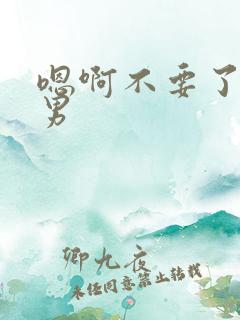 嗯啊不要了
男
卿九夜
未经同意禁止转载